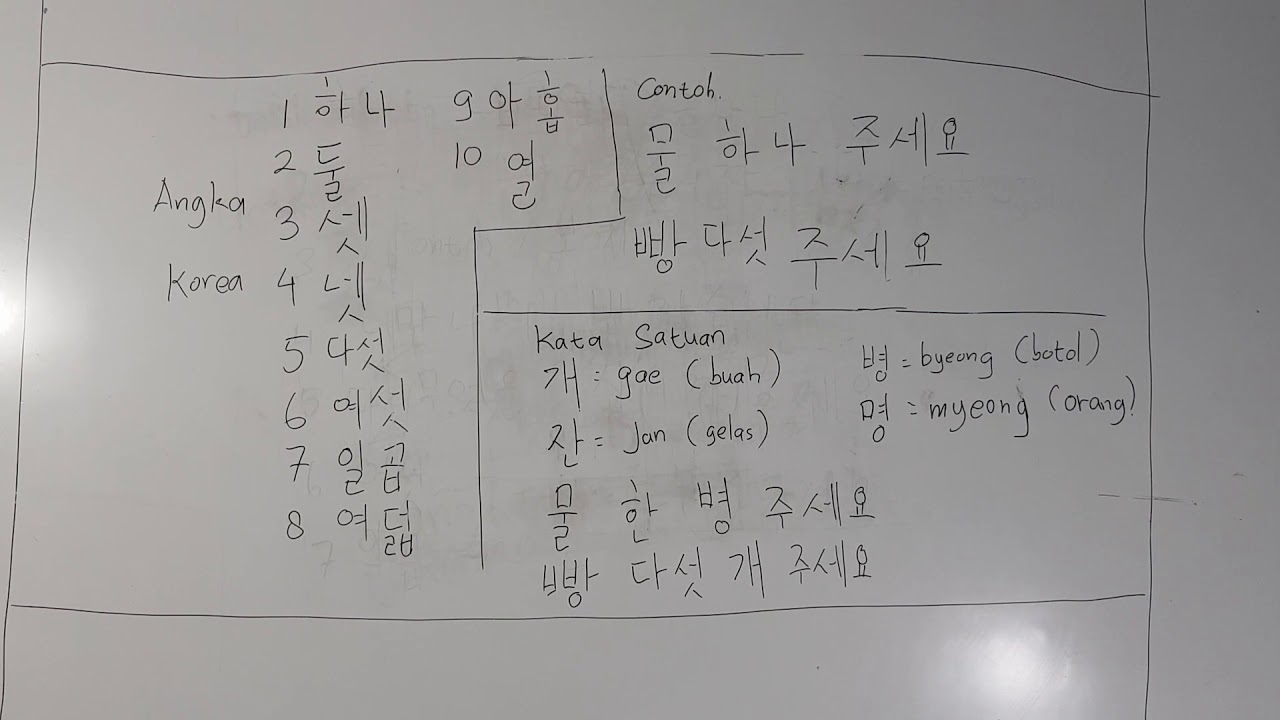 Angka
Korea
1 하나
2 둘
3 셋
4 넷
5 다섯
6 여섯
7 일곱
8 여덟
9 아홉
10 열
Contoh.
물 하나 주세요
빵 다섯 주세요
Kata Satuan
개 = gae (buah)
잔 = Jan (gelas)
병 = byeong (botol)
명 = myeong (orang)
물 한 병 주세요
빵 다섯 개 주세요